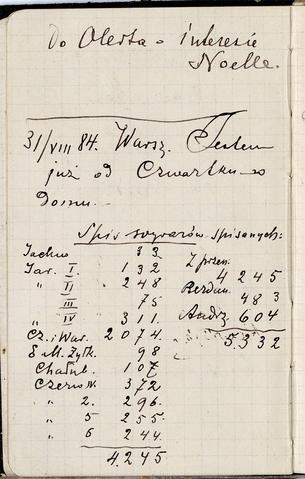 Do Olesia o interesie
Noelle.
31/VIII 84. Warsz. Jestem
już od Czwartku w
Domu.
Spis wyrazów spisanych:
33
Jar. I. 132
" II 248
" III 75
" IV 311.
Cz. i War. 2074.
S. i M. Zytk. 98
Chałub. 107
Czerw. IV. 372
" 2. 296.
" 5 255.
" 6 244.
4.245
Z przen.
4245
483
Andrz. 604
5332